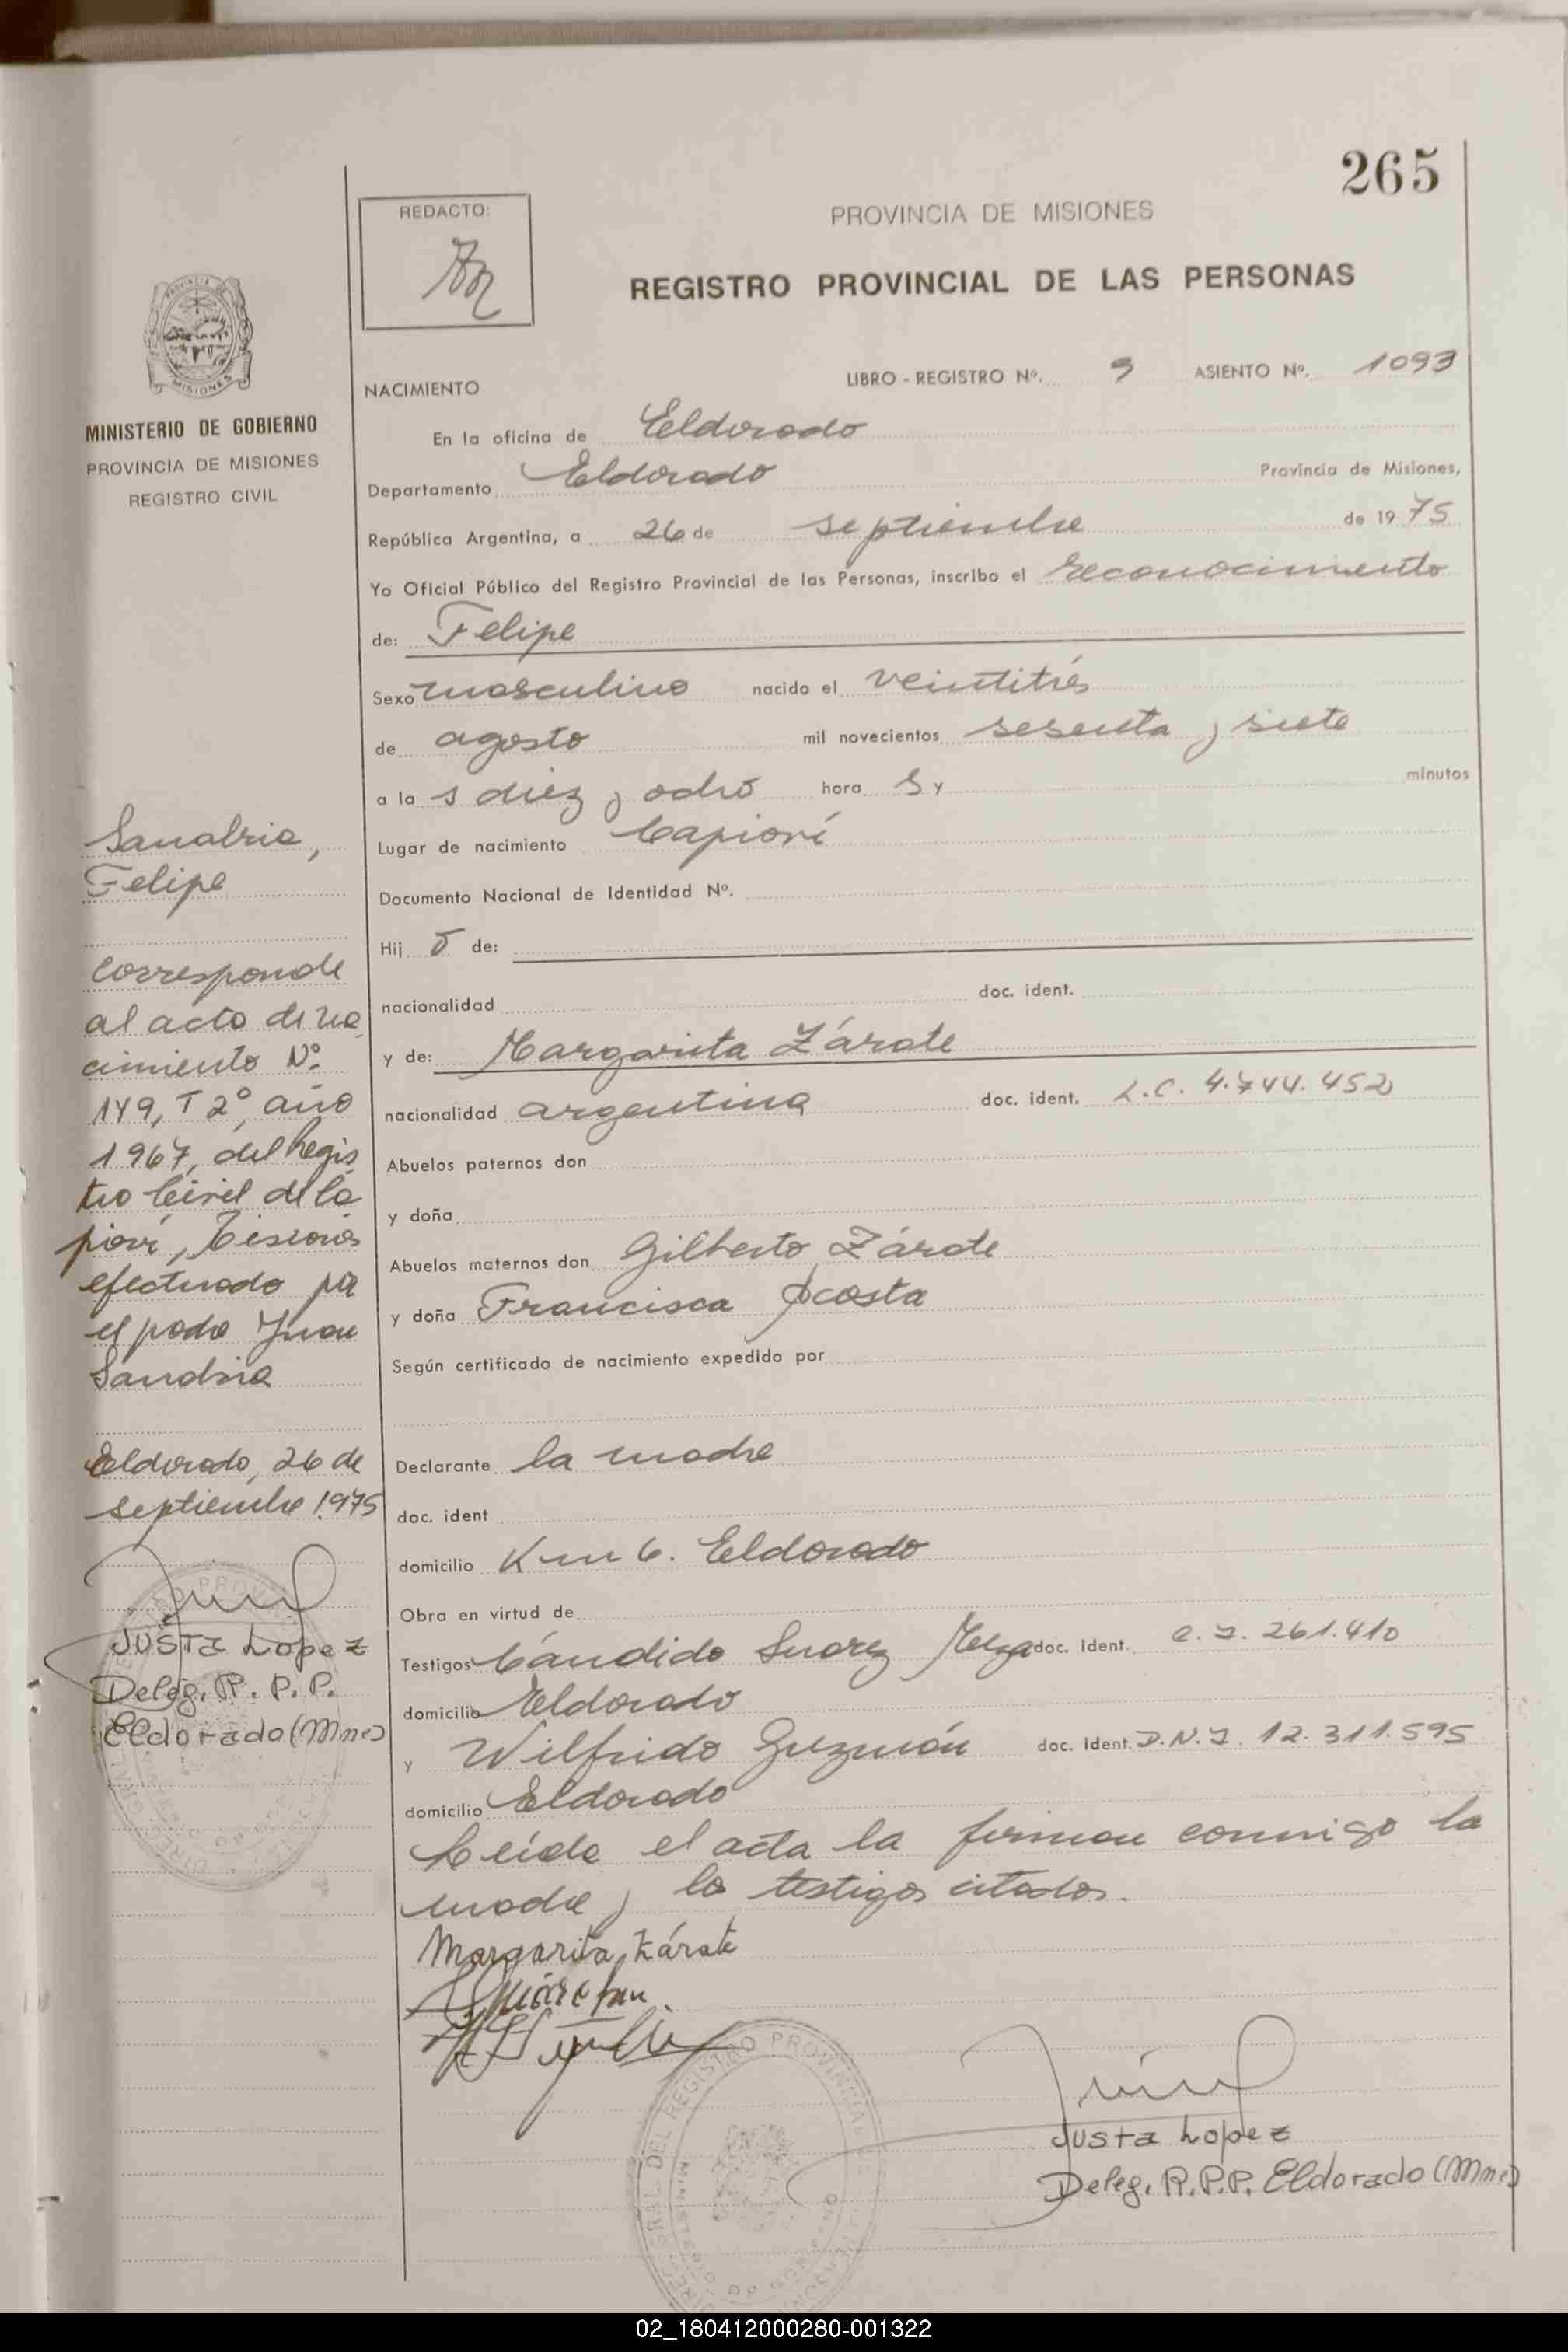 265
REDACTO:
PROVINCIA DE MISIONES
REGISTRO PROVINCIAL DE LAS PERSONAS
NACIMIENTO
LIBRO - REGISTRO Nº. 9 ASIENTO Nº. 1093
MINISTERIO DE GOBIERNO
PROVINCIA DE MISIONES
REGISTRO CIVIL
En la oficina de Eldorado
Departamento Eldorado Provincia de Misiones,
República Argentina, a 26 de septiembre de 1975
Yo Oficial Público del Registro Provincial de las Personas, inscribo el reconocimiento
de: Felipe
Sexo masculino nacido el veintitrés
de agosto mil novecientos sesenta y siete
a las diez y ocho hora s y minutos
Lugar de nacimiento Capioví
Documento Nacional de Identidad Nº.
Hij o de:
nacionalidad doc. ident.
y de: Margarita Zárate
nacionalidad argentina doc. ident. L.C. 4.744.452
Abuelos paternos don
y doña
Abuelos maternos don Gilberto Zárate
y doña Francisca Acosta
Según certificado de nacimiento expedido por
Declarante la madre
doc. ident
domicilio Km 6. Eldorado
Obra en virtud de
Testigos Cándido Suarez doc. ident. C.I. 261.410
domicilio Eldorado
y Wilfrido Guzmán doc. ident. D.N.I. 12.311.595
domicilio Eldorado
Leída el acta la firman conmigo la
madre y los testigos citados.
Margarita Zárate
Justa Lopez
Deleg. R.P.P. Eldorado (Mnes)
Sanabria,
Felipe
Corresponde
al acta de na
cimiento Nº
149, T 2º, año
1967, del Regis
tro Civil de Ca
pioví, Misiones
efectuado por
el padre Juan
Sanabria
Eldorado, 26 de
septiembre 1975
Justa Lopez
Deleg. R. P. P.
Eldorado (Mnes)
02_180412000280-001322